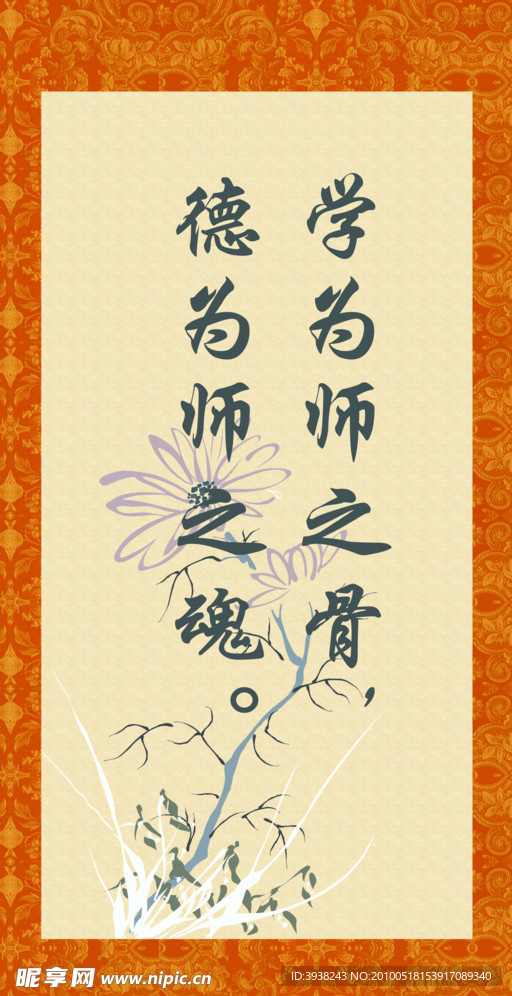 学为师之骨，
德为师之魂。
昵享网 www.nipic.cn
ID:3938243 NO:20100518153917089340